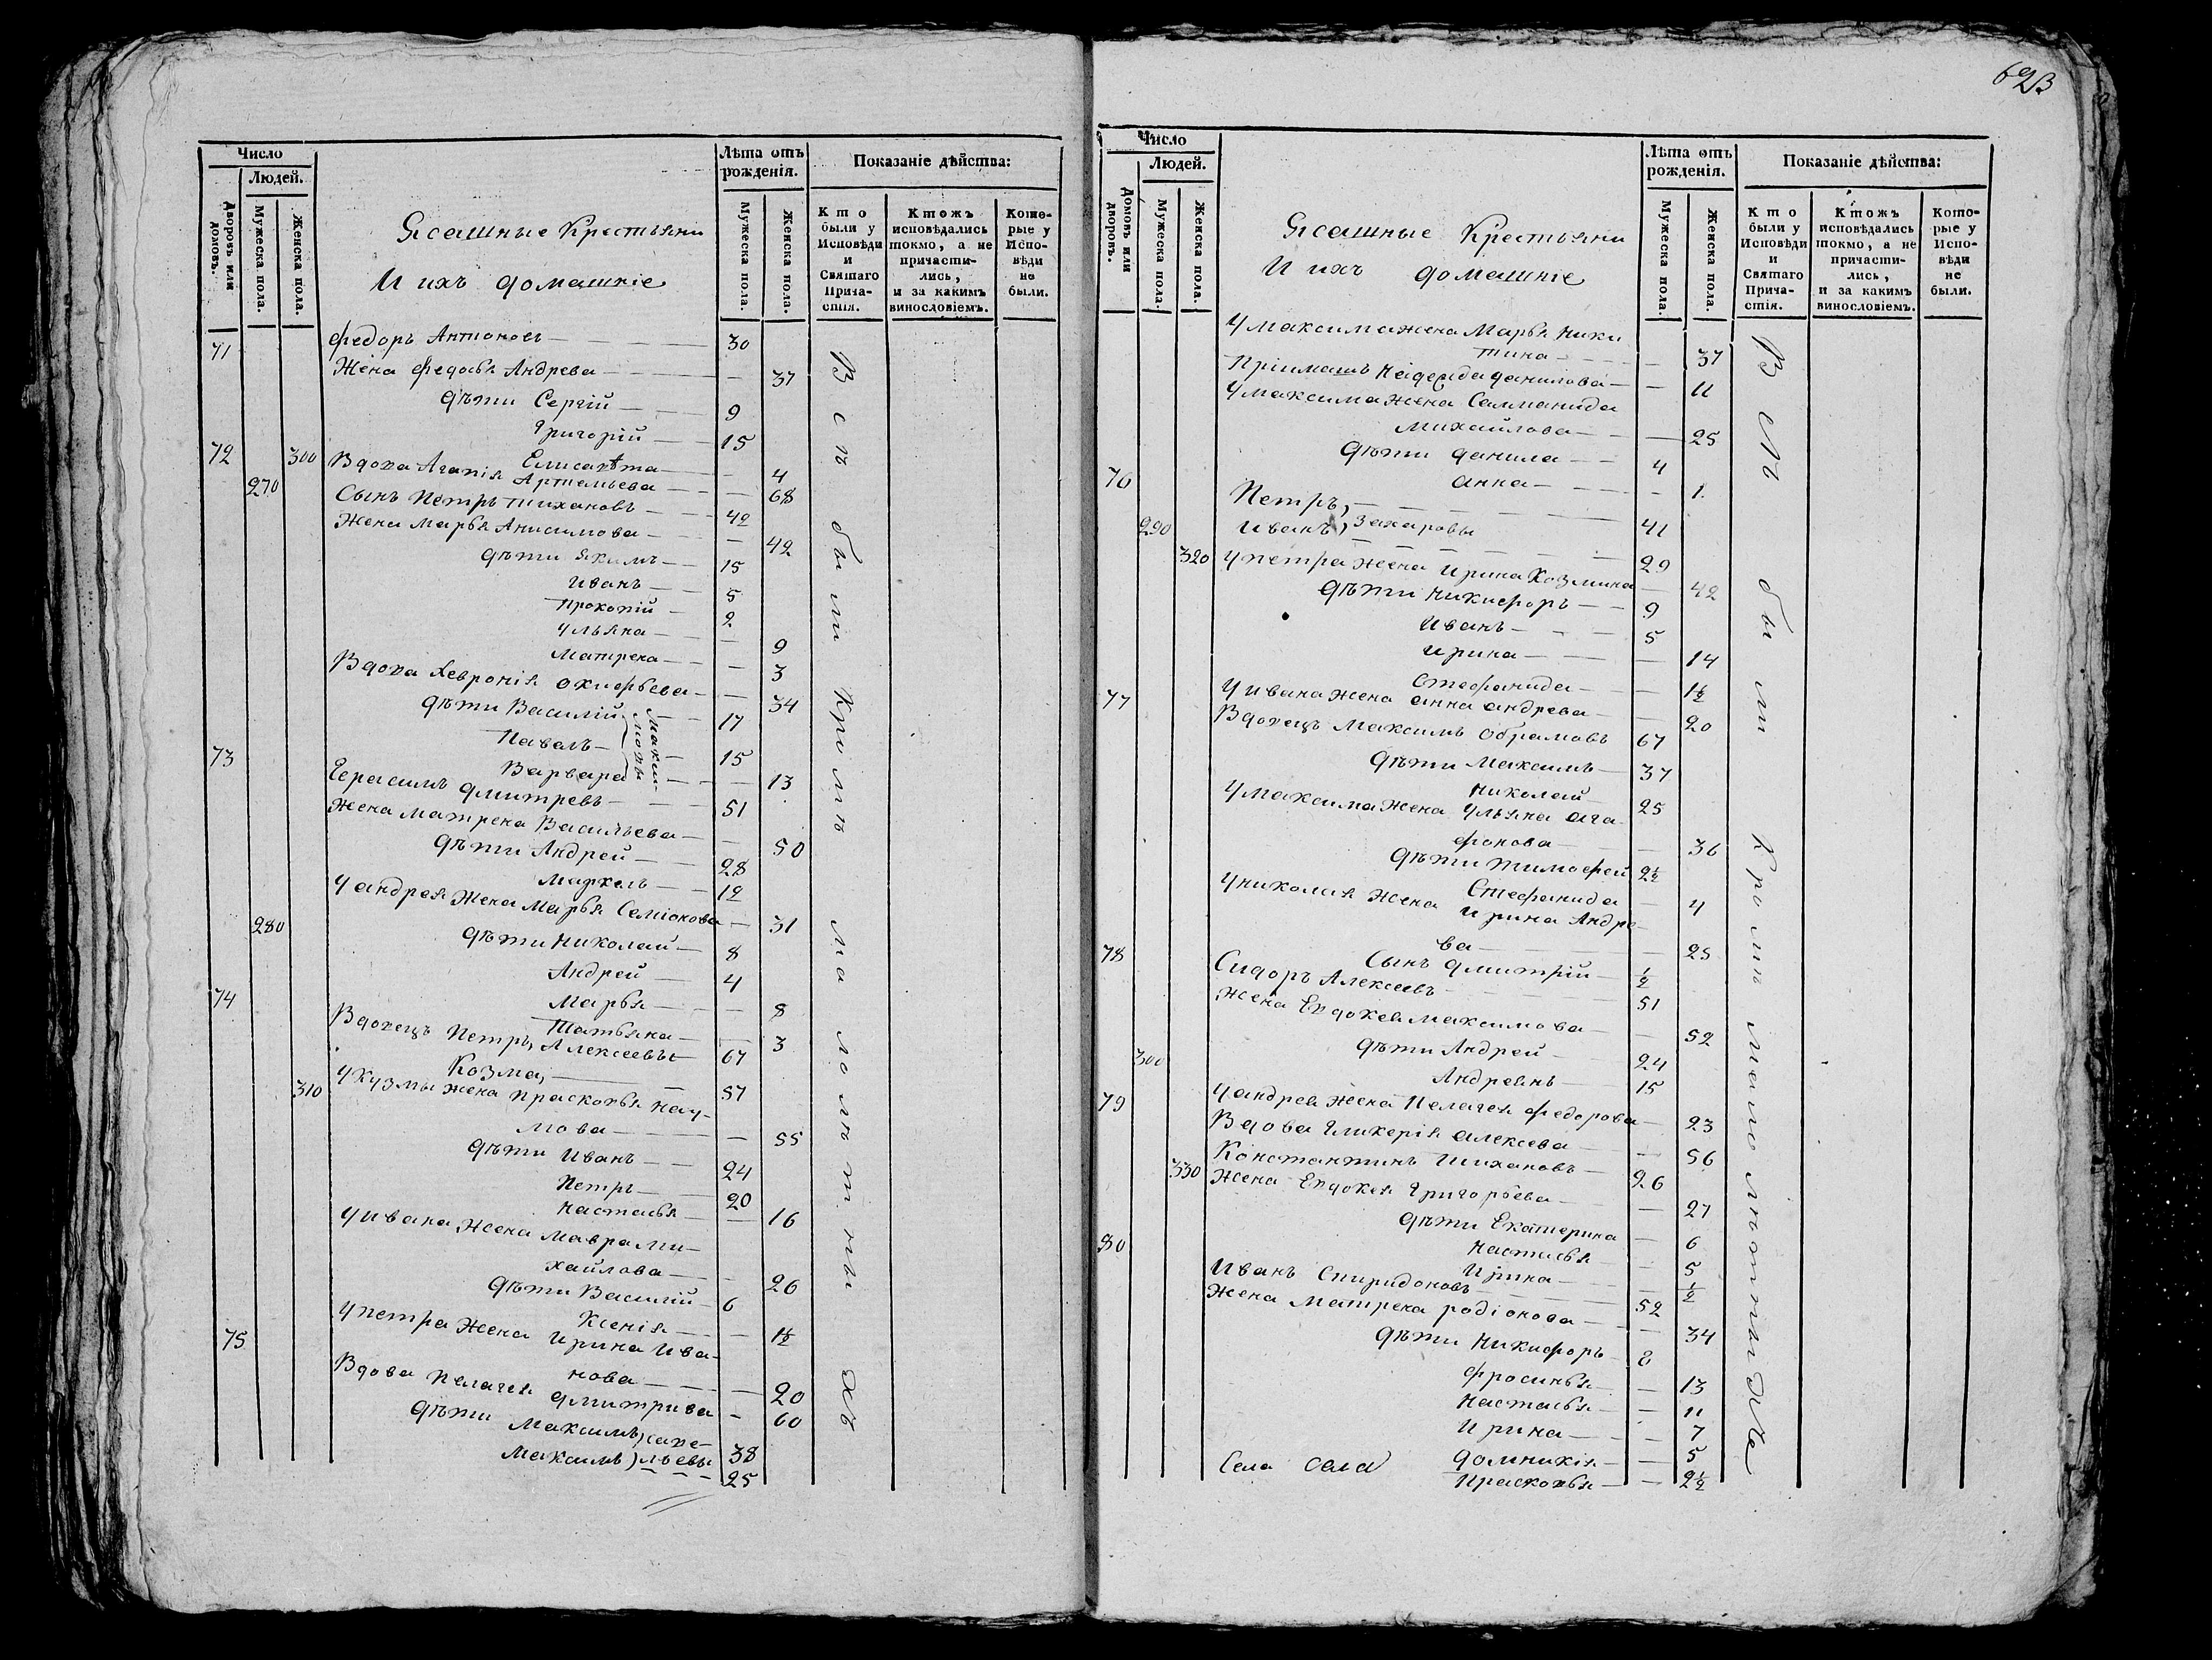 Число
Людей.
Дворовъ или домовъ.
Мужеска пола.
Женска пола.
Ясашные Крестьяни
И ихъ домашніе
Лѣта отъ рожденія.
Мужеска пола.
Женска пола.
Показаніе дѣйства:
Кто были у Исповѣди и Святаго Прича-стія.
Ктожъ исповѣдались токмо, а не причасти-лись, и за какимъ винословіемъ.
Кото-рые у Испо-вѣди не были.
71 Федоръ Антоновъ 30
Жена Федосья Андрева 37
Дѣти Сергій 9
Григорій 15
300 Елисавета 4
72 Вдова Агапія Артемьева 68
270 Сынъ Петръ Тихановъ 42
Жена Марья Анисимова 42
Дѣти Якимъ 15
Иванъ 5
Прокопій 2
Ульяна 9
Матрена 3
Вдова Хевронія 34
Дѣти Василій 17
Павелъ 15
Варвара 13
73 Герасимъ Дмитревъ 51
Жена Матрена Васильева 50
Дѣти Андрей 28
Маркелъ 12
У Андрея Жена Марья Семіонова 31
280 Дѣти Николай 8
Андрей 4
Марья 8
Татьяна 3
74 Вдовецъ Петръ, Алексеевы 67
Козма, 57
310 У Кузмы Жена Прасковья Нау-
мова 55
Дѣти Иванъ 24
Петръ 20
Настасья 16
У Ивана Жена Мавра Ми-
хайлова 26
Дѣти Василій 6
Ксенія 1½
У Петра Жена Ирина Ива-
нова 20
75 Вдова Пелагея Дмитрива 60
Дѣти Максимъ, саве- 38
Максимъ, льевы 25
Всѣ были кромѣ малолѣтныхъ
623
Число
Людей.
Домовъ или дворовъ.
Мужеска пола.
Женска пола.
Ясашные Крестьяни
И ихъ домашніе
Лѣта отъ рожденія.
Мужеска пола.
Женска пола.
Показаніе дѣйства:
Кто были у Исповѣди и Святаго Прича-стія.
Ктожъ исповѣдались токмо, а не причасти-лись, и за какимъ винословіемъ.
Кото-рые у Испо-вѣди не были.
У Максима жена Марья Ники
тина 37
Пріимышъ Данилова 11
У Максима Жена Саломанида
Михайлова 25
Дѣти Данила 4
Анна 1
76 Петръ, 41
290 Иванъ, Захаровы 29
320 У Петра Жена Ирина Козмина 42
Дѣти Никифоръ 9
Иванъ 5
Ирина 14
Стефанида 1½
У Ивана Жена Анна Андрева 20
77 Вдовецъ Максимъ Обрамовъ 67
Дѣти Максимъ 37
Николай 25
У Максима Жена Ульяна Ага
фонова 36
Дѣти Тимофей 2½
Стефанида 4
У Николая Жена Ирина Андре
ва 25
Сынъ Дмитрій ½
78 Сидоръ Алексеевъ 51
Жена Евдокея Максимова 52
Дѣти Андрей 24
300 Андреянъ 15
У Андрея Жена Пелагея Федорова 23
79 Вдова Гликерія Алексева 56
Константинъ Тихановъ 26
330 Жена Евдокея Григорьева 27
Дѣти Екатерина 6
Настасья 5
Ирина ½
80 Иванъ Спиридоновъ 52
Жена Матрена Родіонова 34
Дѣти Никифоръ 8
Фросинья 13
Настасья 11
Ирина 7
Домникія 5
Прасковья 2½
Села села
Всѣ были кромѣ малолѣтныхъ